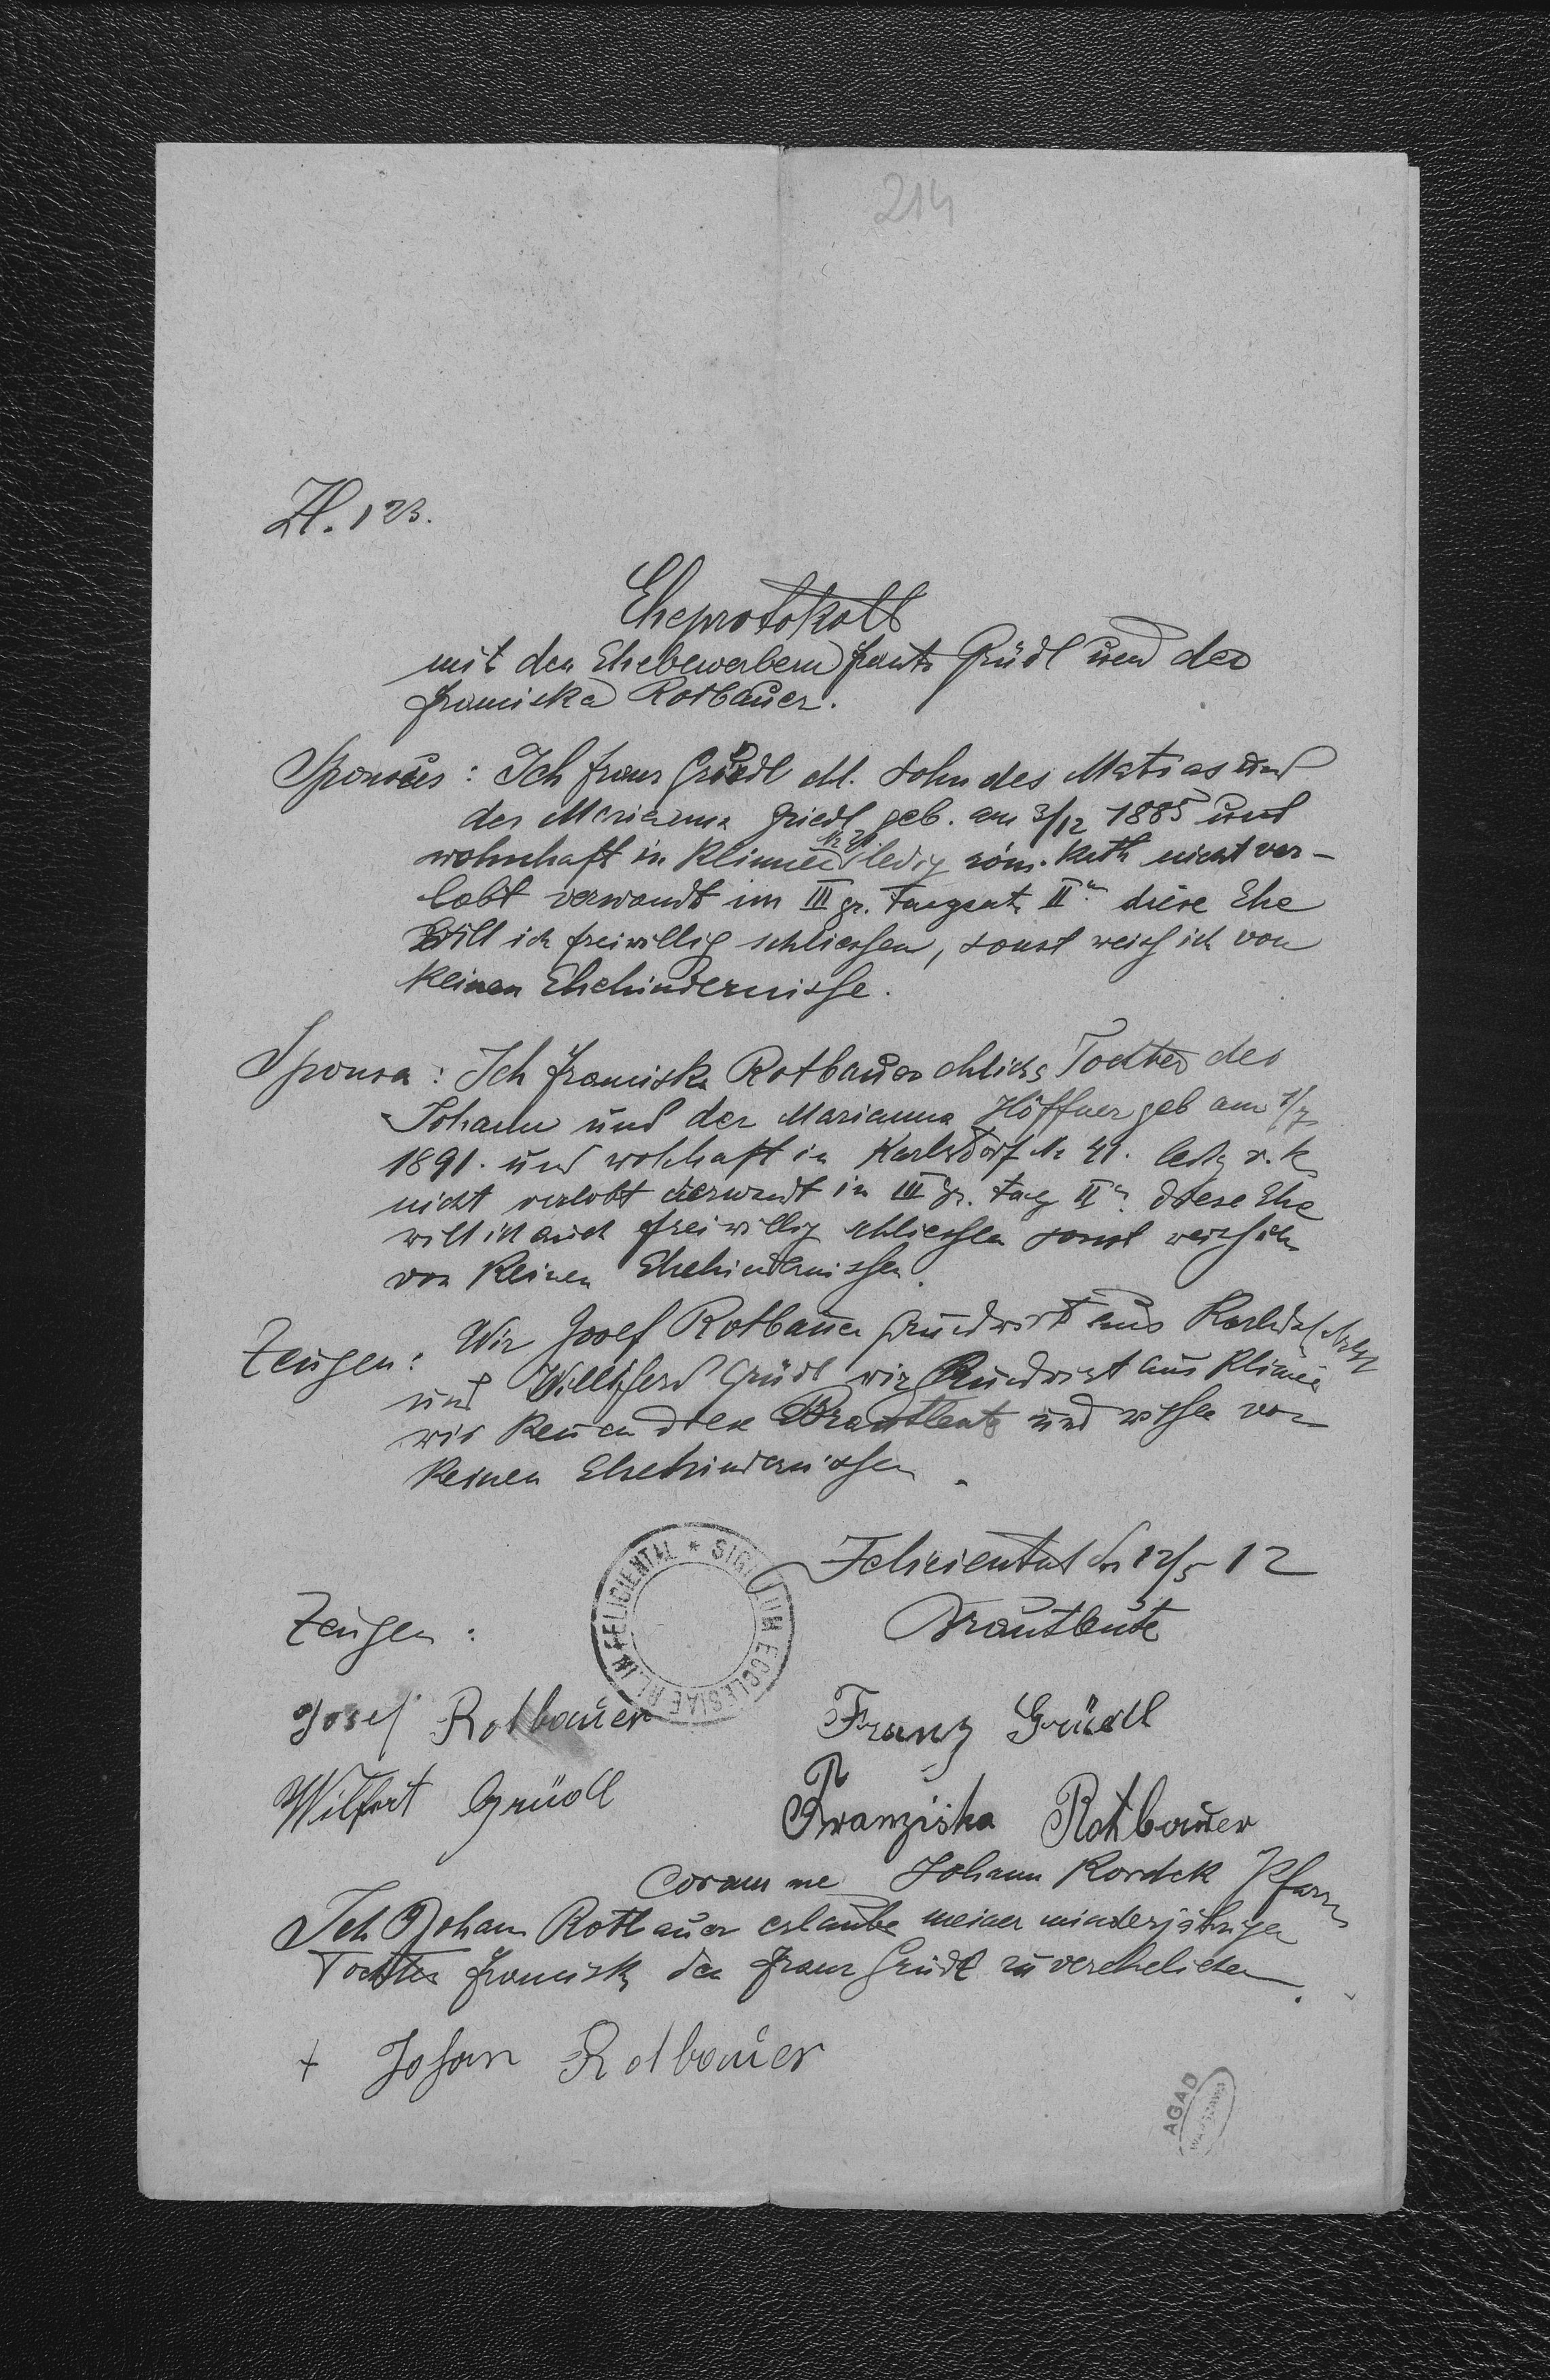 214
Zl. 123.
Eheprotokoll
mit den Ehebewerbern Franz Grüdl und der
Franciska Rotbauer.
Sponsus: Ich Franz Grüdl ehl. Sohn des Matias und
der Marianna Friedl geb. am 3/12 1885 und
wohnhaft in Klimiec Nr 21 ledig röm. kath nicht ver-
lobt verwandt im III gr. tangent. II diese Ehe
will ich freiwillig schliessen, sonst weiss ich von
keinen Ehehindernisse.
Sponsa: Ich Franciska Rotbauer ehliche Tochter des
Johann und der Marianna Höffner geb am 1/7
1891. und wohhaft in Karlsdorf Nr 41. ledig r. k.
nicht verlobt verwandt in III gr. tang II diese Ehe
will ich auch freiwillig schliessen sonst weiss ich
von keinen Ehehindernissen.
Zeugen: Wir Josef Rotbauer Grundwirt aus Karlsdorf
und Grüdl wir Grundwirt aus Klimiec
wir kennen die Brautleute und wissen von
keinen Ehehindernissen.
Felizientat den 12/5 12
SIGILLUM ECCLESIAE RL. IN FELICIENTAL
Zeugen:
Brautleute
Josef Rotbauer
Franz Grüdl
Wilfert Grüdl
Franziska Rotbauer
Coram me Johann Kordek Pfarrer
Ich Johann Rotbauer erlaube meiner minderjährigen
Tochter Francisk den Franz Grüdl zu verehelichen.
+ Johan Rotbauer
AGAD
WARSZAWA